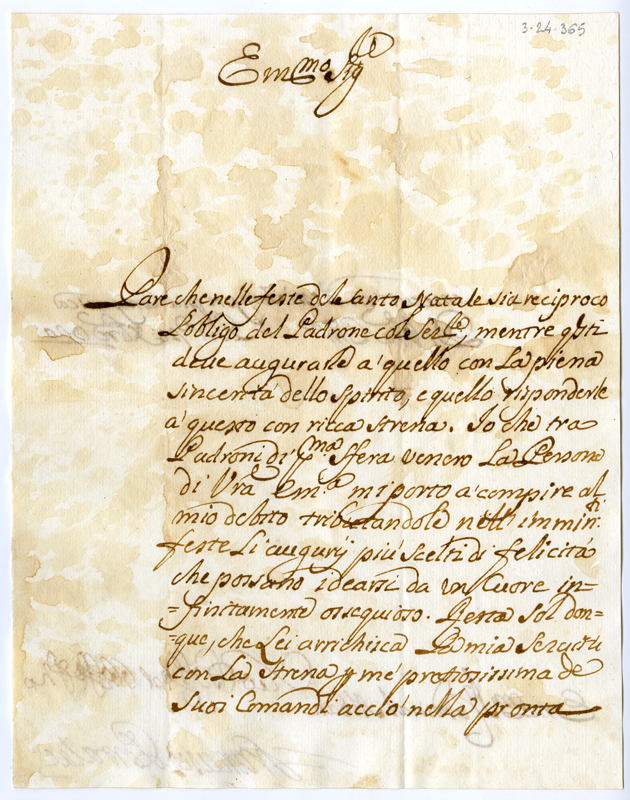 3-24-365
Em.mo Sig.re
Pare che nelle feste del santo Natale sia reciproco
l'obligo del Padrone col Ser.le, mentre q.sti
deve augurare à quello con La piena
sincerità dello spirito, e quello risponderle
à questo con ricca strena. Io che tra
Padroni di p.ma sfera venero La Persona
di Vrã Em.a mi porto à compire al
mio debito tributandole nell'immin.ti
feste Li augurÿ più scelti di felicità
che possano idearsi da un Cuore in=
=finitamente ossequioso. Resta sol don=
=que, che Lei arrichisca La mia Servitù
con La Strena p me pretiosissima de
Suoi Comandi acciò nella pronta